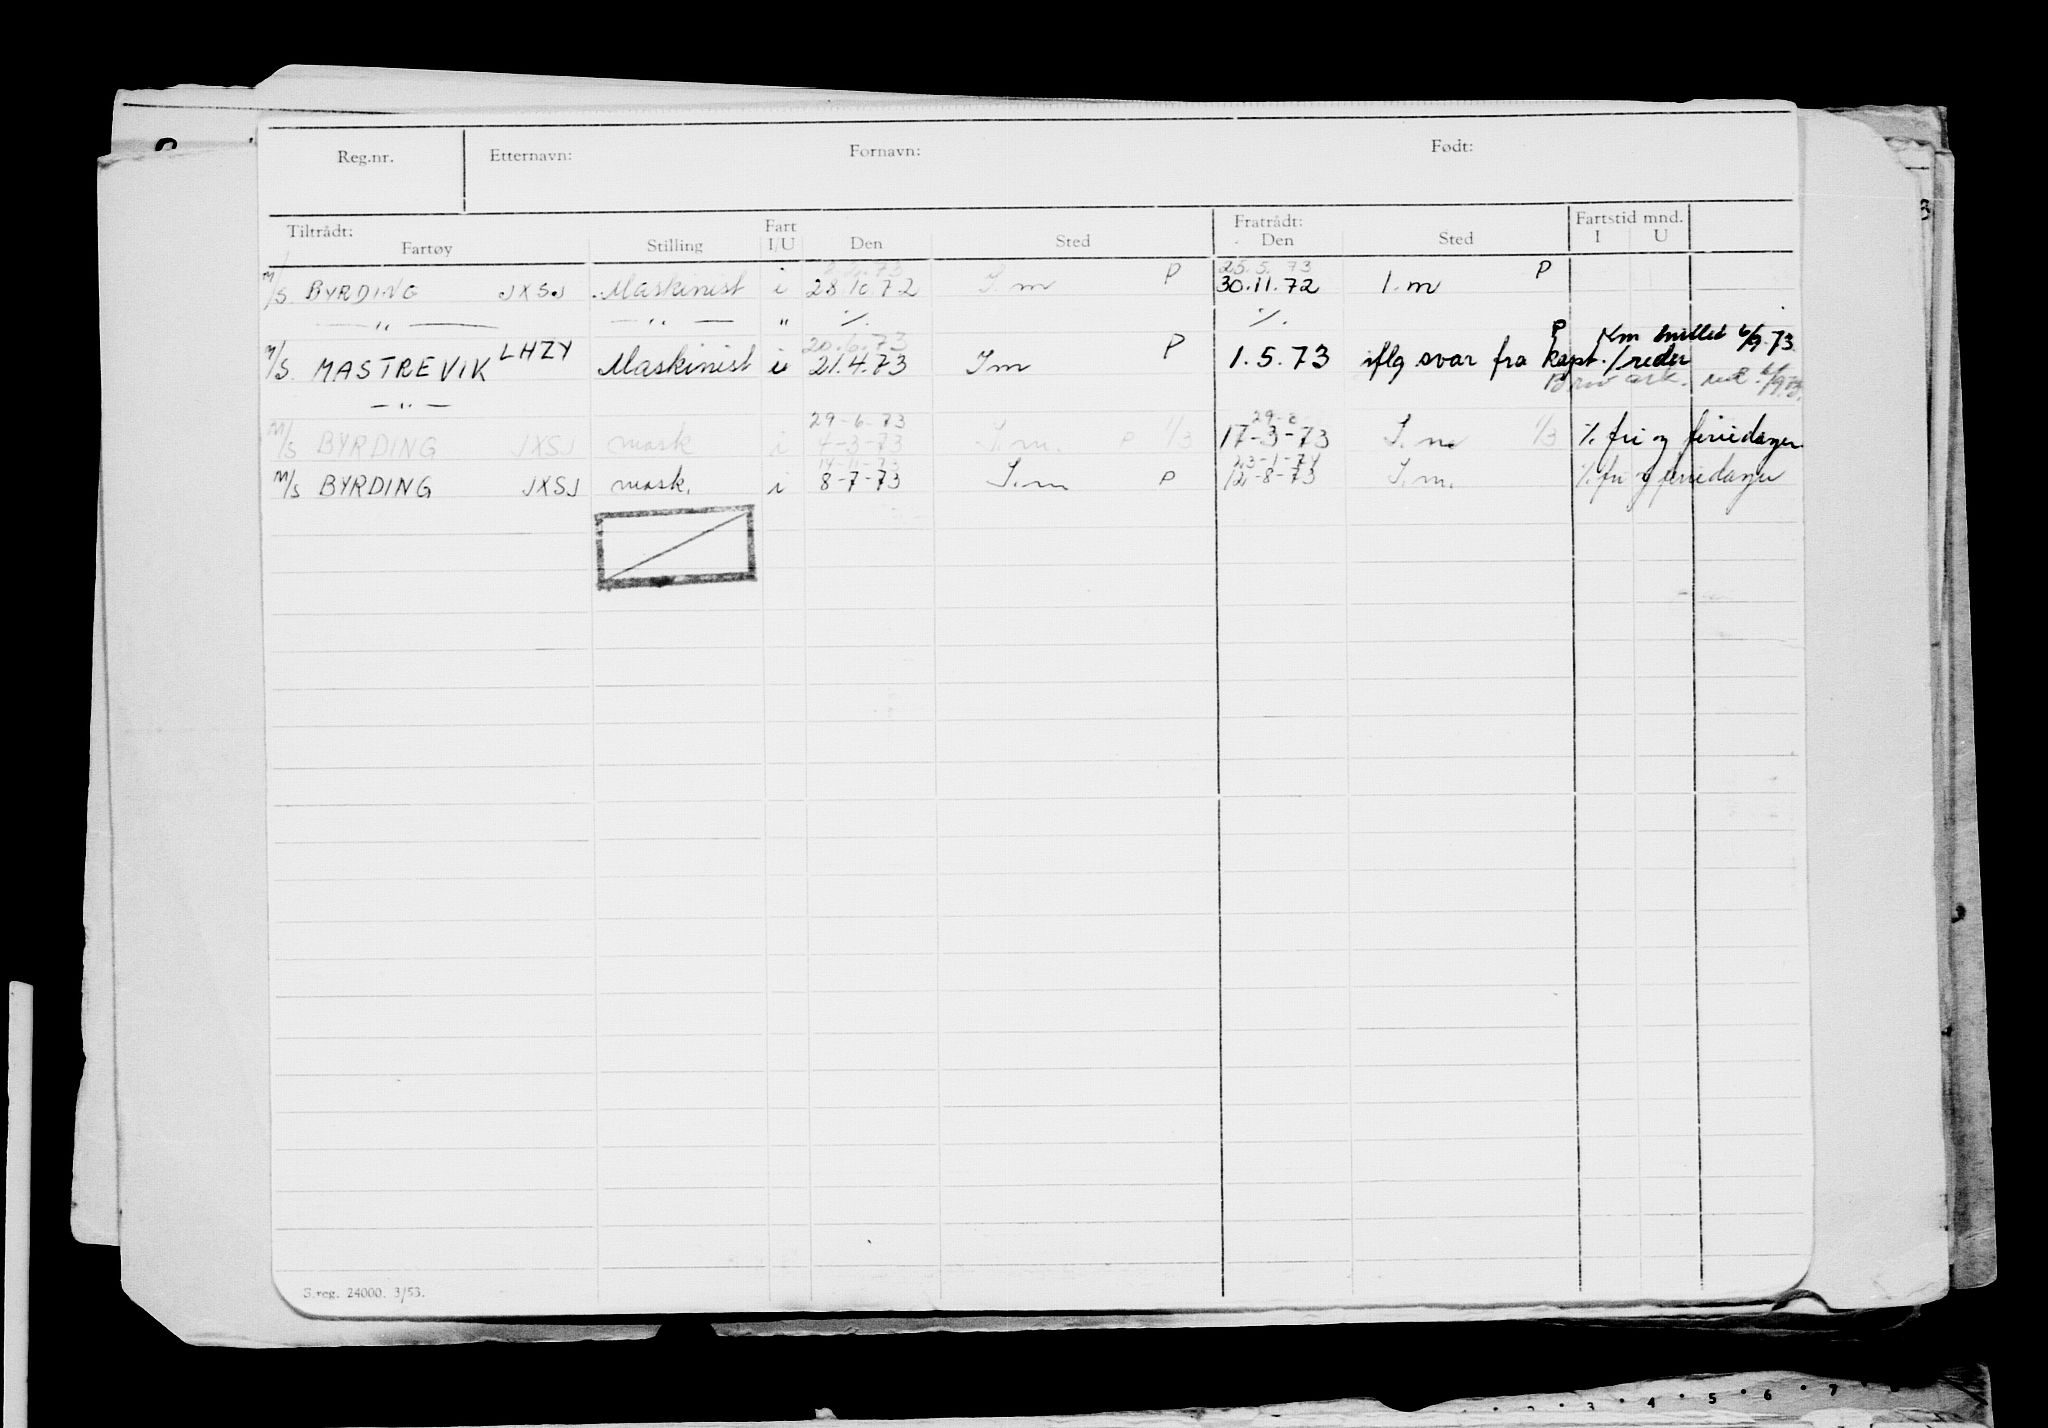 Reg.nr. Etternavn: Fornavn: Født:
Tiltrådt: Fart Fratrådt: Fartstid mnd.
Fartøy Stilling I/U Den Sted Den Sted I U
25.5.73
M/S BYRDING JXSJ Maskinist i 28.10.72 I.m P 30.11.72 I.m P
— " — — " — " ⁒ ⁒
20.6.73 P
M/S. MASTREVIK LHZY Maskinist i 21.4.73 Im P 1.5.73 iflg svar fra kapt./reder 6/9.73
— " —
29-6-73
M/S BYRDING JXSJ mask i 4-3-73 I.m. P 1/3 17-3-73 I.m 1/3 ⁒ fri og feriedager
23-1-74
M/S BYRDING JXSJ mask. i 8-7-73 I.m P 12-8-73 I.m. ⁒ fri og feriedager
S.reg. 24000. 3/53.
3 4 5 6 7